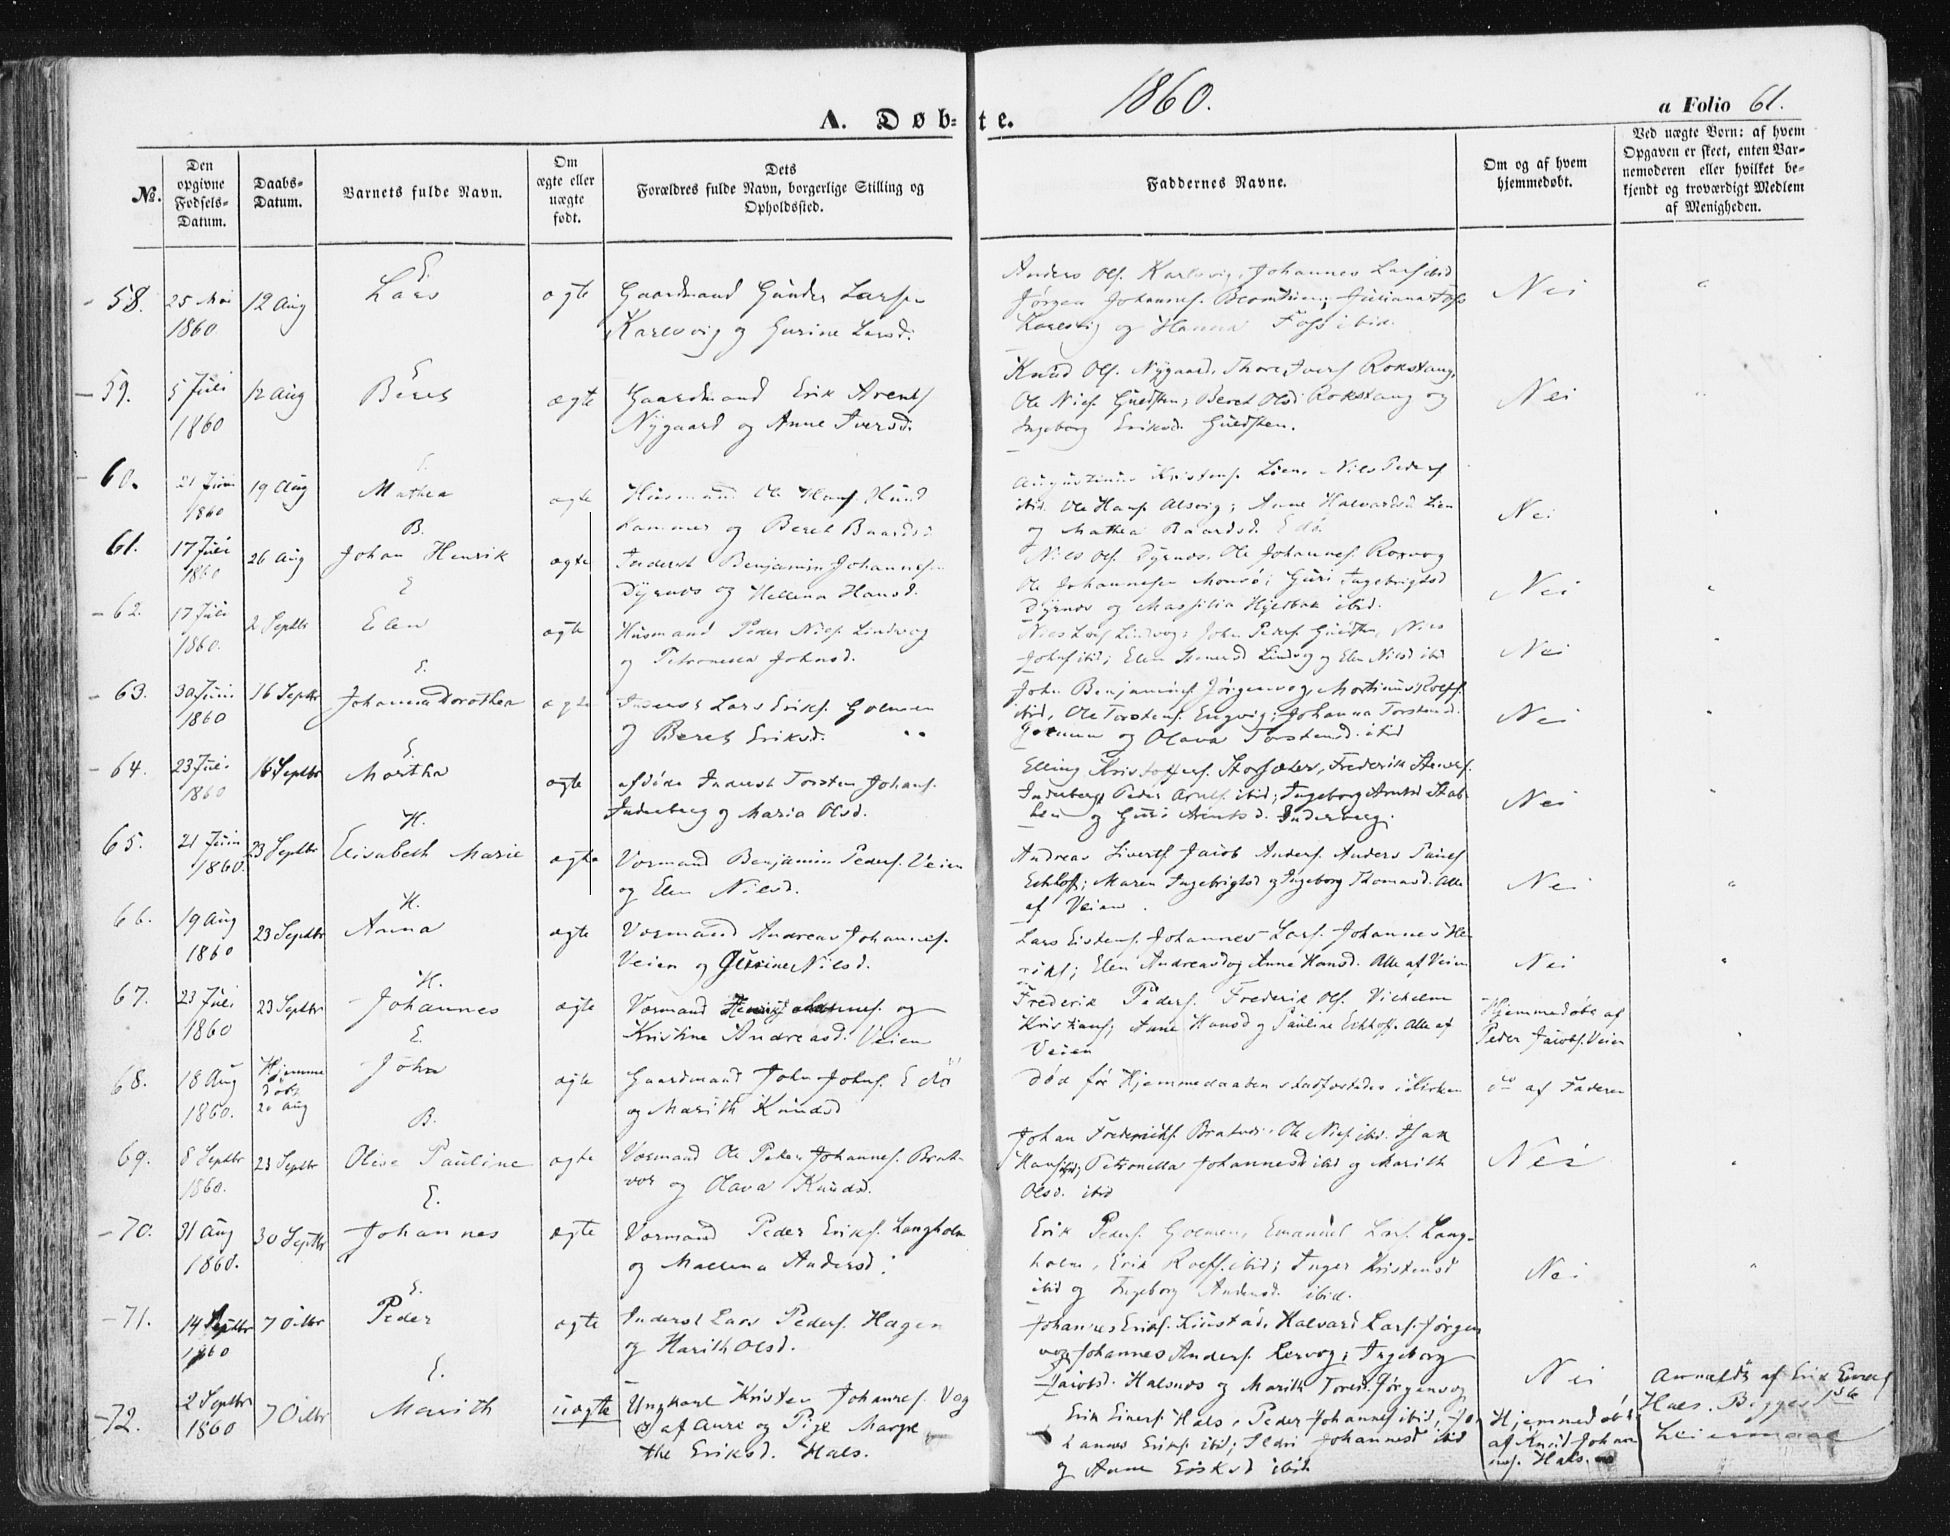 1860.
A. Døb-te.
a Folio 61.
№.
Den opgivne Fødsels-Datum.
Daabs-Datum.
Barnets fulde Navn.
Om ægte eller uægte født.
Dets Forældres fulde Navn, borgerlige Stilling og Opholdssted.
Faddernes Navne.
Om og af hvem hjemmedøbt.
Ved uægte Born: af hvem Opgaven er skeet, enten Barnemoderen eller hvilket bekjendt og troværdigt Medlem af Menigheden.
58. 25 Mai 1860 12 Aug E. Lars ægte
Gaardmand Gunder Larsen
Karlsvig og Gurine Larsd.
Anders Ols. Karlsvig, Johannes Lars ibid
Jørgen Johannes.
Karlsvig og Hanna Foss ibid.
Nei
59. 5 Juli 1860 12 Aug E Beret ægte
Gaardmand Erik Arents
Nygaard og Anne Iversd.
Knud Ols. Nygaard, Thore Ivers Rokstang,
Ole Niels. ; Beret Olsd Rokstang og
Ingeborg Eriksd.
Nei
60. 21 Juni 1860 19 Aug E. Mathea ægte
Husmand Ole Hans Hund
hammer og Beret Baardsd.
Augustinus Kristens. Lien, Nils Peders
ibid. Ole Hans Alsvig; Anne Halvardsd Lien
og Mathea Baardsd. Edø.
Nei
61. 17 Juli 1860 26 Aug B. Johan Henrik ægte
Inderst Benjamin Johannesen
Dyrnæs og Hellena Hansd.
Nils Ols. Dyrnæs. Ole Johannes. Roxvog
Ole Johannesen ; Guri Ingebrigtsd
Dyrnæs og Massilia ibid.
Nei
62. 17 Juli 1860. 2 Septbr E Elen ægte
Husmand Peder Niels. Lindvog
og Petronella Johnsd.
Nils Lars Lindvog; John Peders , Nils
Johns ibid; Elen Lindvog og Elen Nilsd ibid
Nei
63. 30 Juni 1860 16 Septbr E. Johanna Dorothea ægte
Inderst Lars Eriks. Golmen
og Beret Eriksd.
John Benjamins. Jørgenvog, Mortinus Rolfs.
ibid, Ole Torstens. Engvig; Johanna Torstensd.
Golmen og Olava Torstensd. ibid
Nei
64. 23 Juli 1860 16 Septbr E. Martha ægte
afdøde Inderst Torsten Johans.
Inderberg og Maria Olsd.
Elling Kristoffers. Storsæter, Frederik
Inderberg, Peder Arnts. ibid; Ingeborg Arntsd Stab-
ben og Guri Arntsd. Inderberg.
Nei
65. 21 Juni 1860. 23 Septbr H. Elisabeth Marie ægte
Vormand Benjamin Peders. Veien
og Elen Nilsd.
Andreas Siverts Jacob Anders. Anders Pauls.
Eckhoff; Maren Ingebrigtsd og Ingeborg Thomasd. Alle
af Veien.
Nei
66. 19 Aug 1860 23 Septbr H. Anna ægte
Vormand Andreas Johannes.
Veien og Gurine Nilsd.
Lars Eistens. Johannes Lars. Johannes He-
; Elen Andreasd og Anne Hansd. Alle af Veien
Nei
67. 23 Juli 1860 23 Septbr H. Johannes ægte
Vormand Johannes. og
Kristine Andreasd. Veien
Frederik Peders. Frederik Ols. Vilhelm
Kristians; Anne Hansd og Pauline Eckhoff. Alle af
Veien
Hjemmedøbt af
Peder Jacobs. Veien
68. 18 Aug 1860. Hjemmedøbt 20 Aug E. John ægte
Gaardmand John Johns. Edø
og Marith Knudsd
Død før Hjemmedaaben stadfæstedes i Kirken
do af Faderen
69. 8 Septbr 1860. 23 Septbr B. Olise Pauline ægte
Vormand Ole Peder Johannes. Brat-
vær og Olava Knudsd.
Johan Frederiks. Bratvær. Ole Niels ibid. Isak
Hans ibid; Petronella Johannesd ibid og Marith
Olsd. ibid
Nei
70. 31 Aug 1860. 30 Septbr E. Johannes ægte
Vormand Peder Eriks. Langholm
og Mallena Andersd.
Erik Peders. Golmen, Emanuel Lars. Lang-
holm, Erik Rolfs. ibid; Inger Kristensd
ibid og Ingeborg Andersd. ibid.
Nei
71. 14 Septbr 1860 7 Octbr E. Peder ægte
Inderst Lars Peders. Hagen
og Marith Olsd.
Johannes Eriks. , Halvard Lars. Jørgen
vog Johannes Anders. Rervog; Ingeborg
Jacobsd. Halsnæs og Marith Toresd. Jørgenvog
Nei
72. 2 Septbr 1860 7 Octbr E. Marith uægte
Ungkarl Kristen Johannes. Vog
af Aure og Pige Margre
the Eriksd. Hals.
Erik Einers. Hals, Peder Johannes ibid, Jo
hannes Eriks. ibid; Sildri Johannesd ibid
og Anne Eriksd ibid.
Hjemmedøbt
af Knud Johan
nes. Hals.
Anmeldt af Erik Einers
Hals. Begges 1ste
Leiermaal